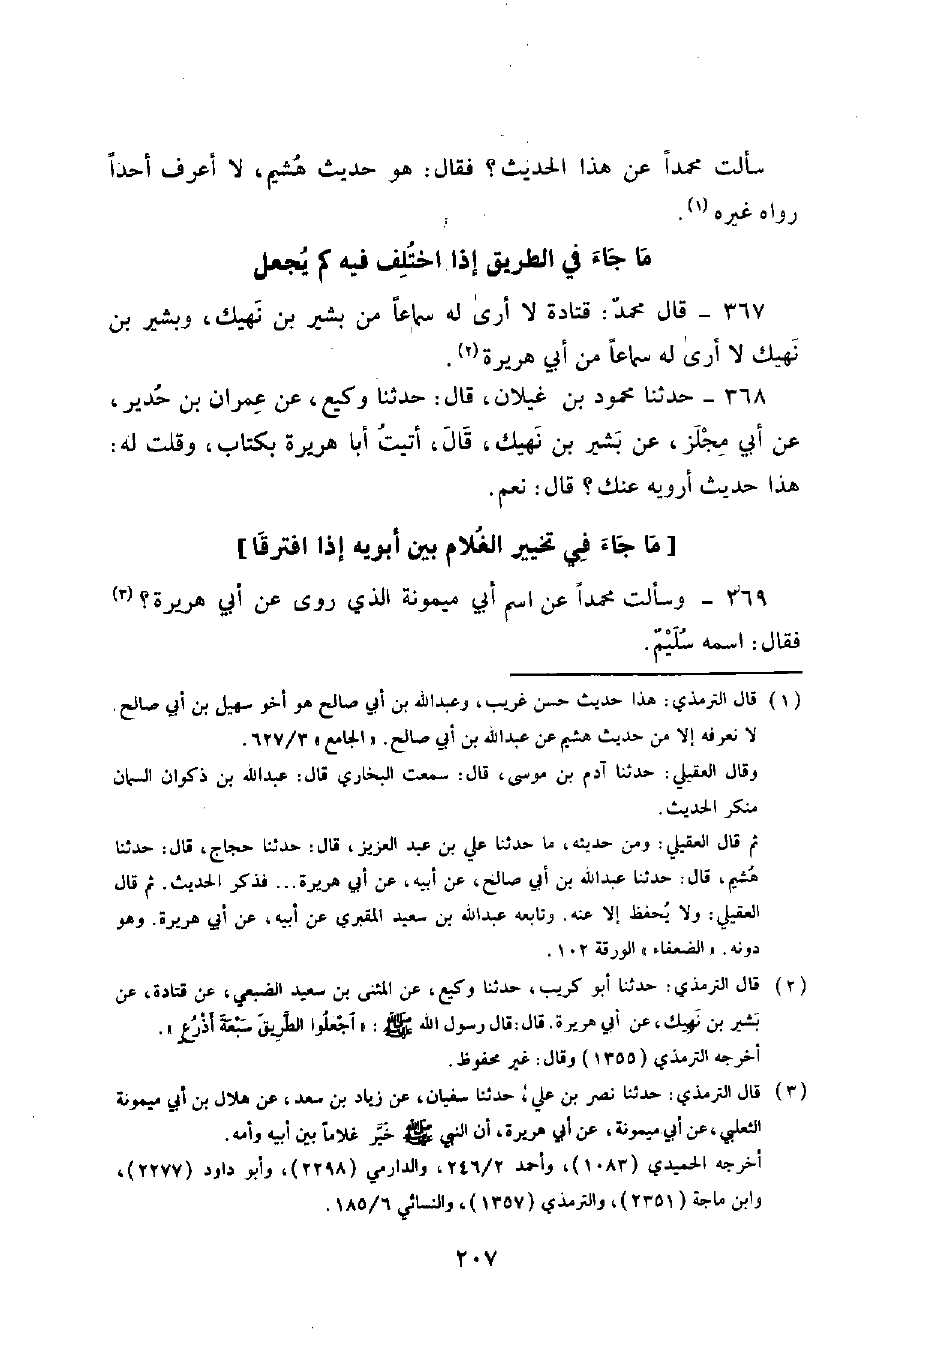 سألت محمداً عن هذا الحديث؟ فقال: هو حديث هُشيم، لا أعرف أحداً
رواه غيره (١).
مَا جَاءَ في الطريق إذا اختُلِف فيه كم يُجعل
٣٦٧ ـ قال محمدٌ: قتادة لا أرىٰ له سماعاً من بشير بن نَهيك، وبشير بن
نَهيك لا أرىٰ له سماعاً من أبي هريرة (٢).
٣٦٨ ـ حدثنا محمود بن غيلان، قال: حدثنا وكيع، عن عِمران بن حُدير،
عن أبي مِجْلَز، عن بَشير بن نَهيك، قَالَ، أتيتُ أبا هريرة بكتاب، وقلت له:
هذا حديث أرويه عنك؟ قال: نعم.
[مَا جَاءَ فِي تخيير الغُلام بين أبويه إذا افترقَا]
٣٦٩ ـ وسألت محمداً عن اسم أبي ميمونة الذي روى عن أبي هريرة؟ (٣)
فقال: اسمه سُلَيْمٌ.
(١) قال الترمذي: هذا حديث حسن غريب، وعبدالله بن أبي صالح هو أخو سهيل بن أبي صالح.
لا نعرفه إلا من حديث هشيم عن عبدالله بن أبي صالح. «الجامع» ٦٢٧/٣.
وقال العقيلي: حدثنا آدم بن موسى، قال: سمعت البخاري قال: عبدالله بن ذكوان السمان
منكر الحديث.
ثم قال العقيلي: ومن حديثه، ما حدثنا علي بن عبد العزيز، قال: حدثنا حجاج، قال: حدثنا
هُشيم، قال: حدثنا عبدالله بن أبي صالح، عن أبيه، عن أبي هريرة... فذكر الحديث. ثم قال
العقيلي: ولا يُحفظ إلا عنه. وتابعه عبدالله بن سعيد المقبري عن أبيه، عن أبي هريرة. وهو
دونه. «الضعفاء» الورقة ١٠٢.
(٢) قال الترمذي: حدثنا أبو كريب، حدثنا وكيع، عن المثنى بن سعيد الضبعي، عن قتادة، عن
بَشير بن نَهيك، عن أبي هريرة. قال: قال رسول الله ﷺ: «اَجْعلُوا الطَّرِيقَ سَبْعَةَ أَذْرُعٍ».
أخرجه الترمذي (١٣٥٥) وقال: غير محفوظ.
(٣) قال الترمذي: حدثنا نصر بن علي، حدثنا سفيان، عن زياد بن سعد، عن هلال بن أبي ميمونة
الثعلبي، عن أبي ميمونة، عن أبي هريرة، أن النبي ﷺ خَيَّر غلاماً بين أبيه وأمه.
أخرجه الحميدي (١٠٨٣)، وأحمد ٢٤٦/٢، والدارمي (٢٢٩٨)، وأبو داود (٢٢٧٧)،
وابن ماجة (٢٣٥١)، والترمذي (١٣٥٧)، والنسائي ١٨٥/٦.
٢٠٧